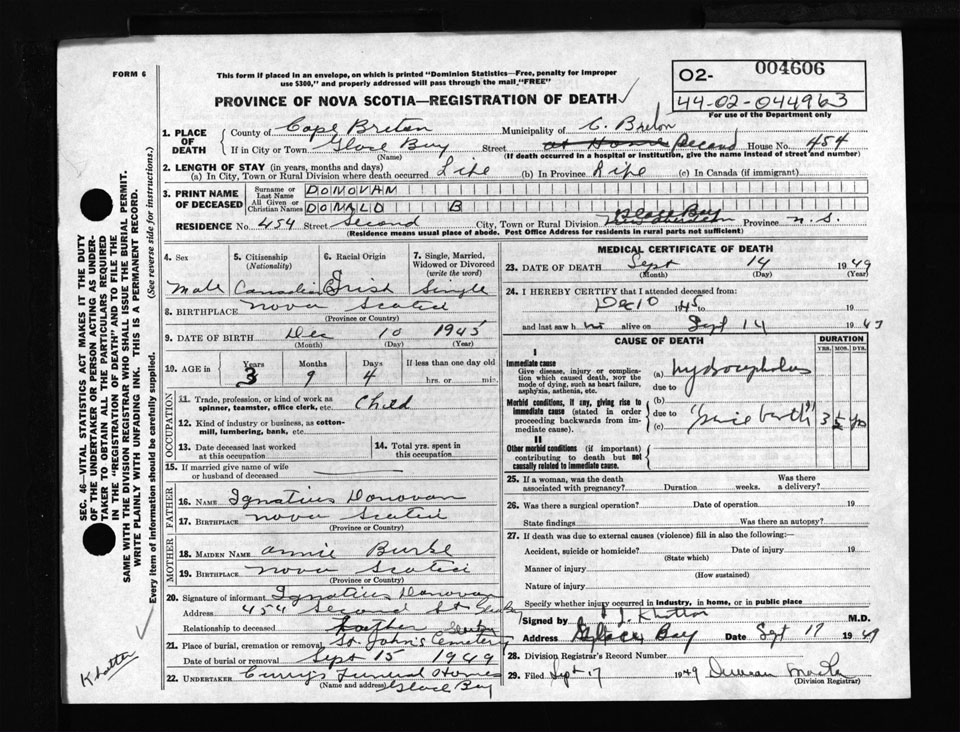 FORM 6
This form if placed in an envelope, on which is printed "Dominion Statistics—Free, penalty for improper
use $300," and properly addressed will pass through the mail "FREE"
PROVINCE OF NOVA SCOTIA—REGISTRATION OF DEATH
02- 004606
44-02-044963
For use of the Department only
1. PLACE OF DEATH
County of Cape Breton Municipality of C. Breton
If in City or Town Glace Bay Street at Home Second House No. 454
(Name) (If death occurred in a hospital or institution, give the name instead of street and number)
2. LENGTH OF STAY (in years, months and days)
(a) In City, Town or Rural Division where death occurred Life (b) In Province Life (c) In Canada (if immigrant)
3. PRINT NAME OF DECEASED
Surname or Last Name DONOVAN
All Given or Christian Names DONALD B
RESIDENCE No. 454 Street Second City, Town or Rural Division Glace Bay Province N.S.
(Residence means usual place of abode. Post Office Address for residents in rural parts not sufficient)
4. Sex Male
5. Citizenship (Nationality) Canadian
6. Racial Origin Irish
7. Single, Married, Widowed or Divorced (write the word) Single
8. BIRTHPLACE Nova Scotia
(Province or Country)
9. DATE OF BIRTH Dec 10 1945
(Month) (Day) (Year)
10. AGE in Years Months Days If less than one day old
3 9 4 hrs. or min.
OCCUPATION
11. Trade, profession, or kind of work as
spinner, teamster, office clerk, etc. Child
12. Kind of industry or business, as cotton-
mill, lumbering, bank, etc.
13. Date deceased last worked at this occupation
14. Total yrs. spent in this occupation
15. If married give name of wife
or husband of deceased
FATHER
16. NAME Ignatius Donovan
17. BIRTHPLACE Nova Scotia
(Province or Country)
MOTHER
18. MAIDEN NAME Annie Burke
19. BIRTHPLACE Nova Scotia
(Province or Country)
20. Signature of informant Ignatius Donovan
Address 454 Second St
Relationship to deceased Father
21. Place of burial, cremation or removal St. John's Cemetery
Date of burial or removal Sept 15 1949
22. UNDERTAKER Curry's Funeral Home
(Name and address) Glace Bay
MEDICAL CERTIFICATE OF DEATH
23. DATE OF DEATH Sept 14 1949
(Month) (Day) (Year)
24. I HEREBY CERTIFY that I attended deceased from:
Dec 10 1945 19
and last saw h im alive on Sept 14 19
CAUSE OF DEATH
DURATION
YRS. MOS. DYS.
I
Immediate cause
Give disease, injury or complica-
tion which caused death, not the
mode of dying, such as heart failure,
asphyxia, asthenia, etc.
(a) hydrocephalus
due to
Morbid conditions, if any, giving rise to
immediate cause (stated in order
proceeding backwards from im-
mediate cause).
(b)
due to
(c) "since birth"
II
Other morbid conditions (if important)
contributing to death but not
causally related to immediate cause.
25. If a woman, was the death
associated with pregnancy? Duration weeks. Was there a delivery?
26. Was there a surgical operation? Date of operation 19
State findings Was there an autopsy?
27. If death was due to external causes (violence) fill in also the following:—
Accident, suicide or homicide? Date of injury 19
(State which)
Manner of injury
(How sustained)
Nature of injury
Specify whether injury occurred in industry, in home, or in public place
Signed by Khattar M.D.
Address Glace Bay Date Sept 17 1949
28. Division Registrar's Record Number
29. Filed Sept 17 1949 Duncan
(Division Registrar)
SEC. 46—VITAL STATISTICS ACT MAKES IT THE DUTY
OF THE UNDERTAKER OR PERSON ACTING AS UNDER-
TAKER TO OBTAIN ALL THE PARTICULARS REQUIRED
IN THE "REGISTRATION OF DEATH" AND TO FILE THE
SAME WITH THE DIVISION REGISTRAR WHO SHALL ISSUE THE BURIAL PERMIT.
WRITE PLAINLY WITH UNFADING INK. THIS IS A PERMANENT RECORD.
Every item of information should be carefully supplied. (See reverse side for instructions.)
Khattar